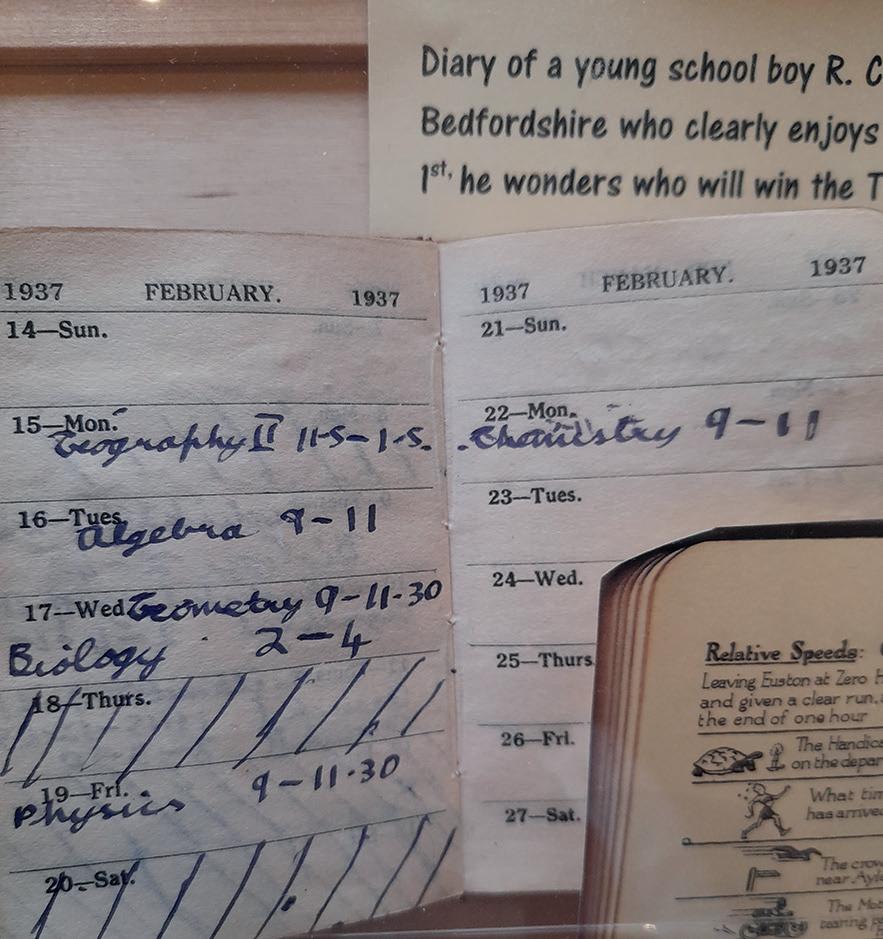 Diary of a young school boy R. C
Bedfordshire who clearly enjoys
1st, he wonders who will win the T
1937 FEBRUARY. 1937
14—Sun.
15—Mon.
Geography II 11-5-1-5.
16—Tues.
Algebra 9-11
17—Wed Geometry 9-11-30
Biology 2-4
18—Thurs.
19—Fri. 9-11-30
Physics
20—Sat.
1937 FEBRUARY. 1937
21—Sun.
22—Mon.
Chemistry 9-11
23—Tues.
24—Wed.
25—Thurs
26—Fri.
27—Sat.
Relative Speeds:
Leaving Euston at Zero H
and given a clear run,
the end of one hour
The Handica
on the depar
What tim
has arrive
The crow
near Ayle
The Mot
tearing